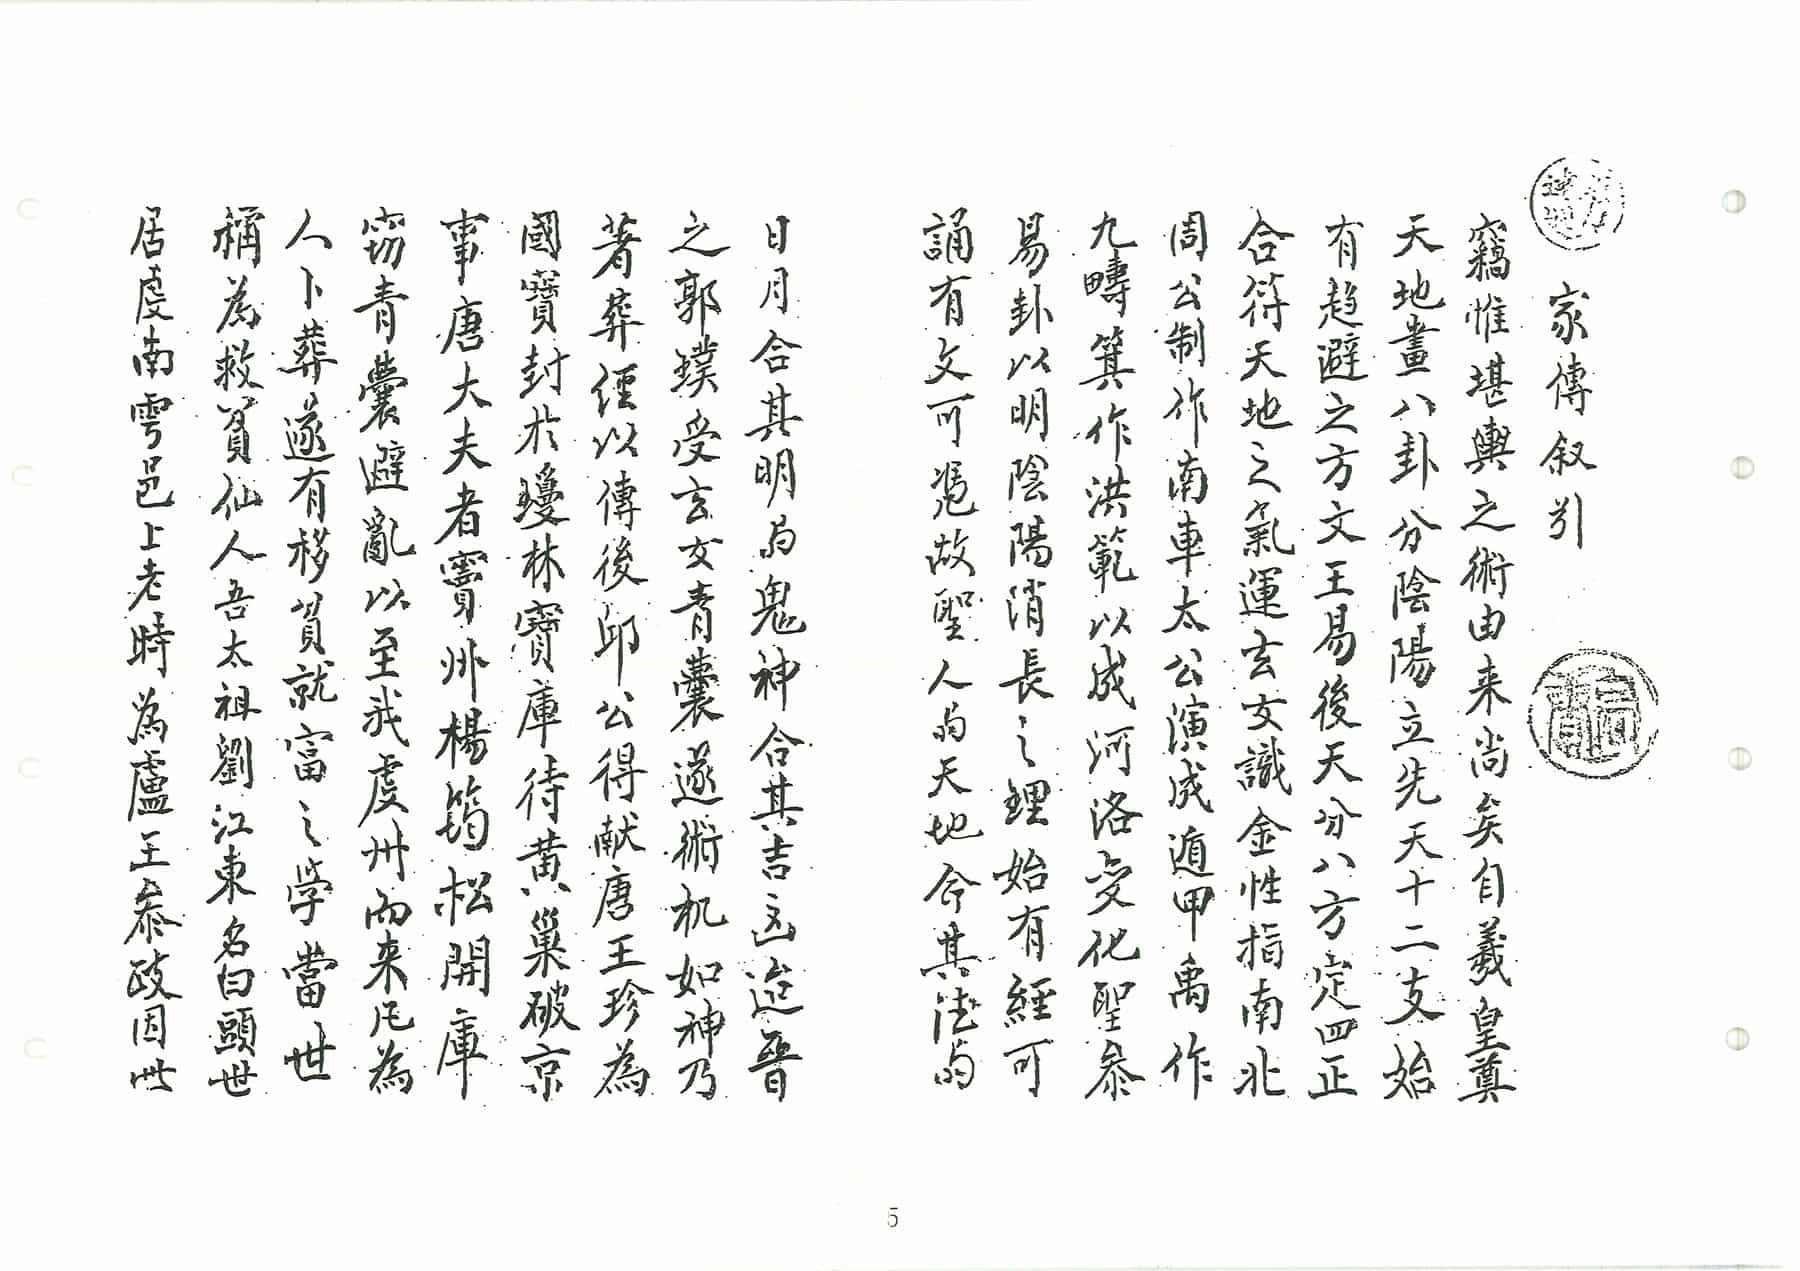 家傳叙引
竊惟堪輿之術由来尚矣自羲皇奠
天地畫八卦分陰陽立先天十二支始
有趋避之方文王易後天分八方定四正
合符天地之氣運玄女識金性指南北
周公制作南車太公演成遁甲禹作
九疇箕作洪範以成河洛变化聖叅
易卦以明陰陽消長之理始有經可
誦有文可憑故聖人與天地合其德與
日月合其明與鬼神合其吉凶迨晋
之郭璞受玄女青囊遂術机如神乃
著葬經以傳後邱公得献唐王珍為
國寶封於瓊林寶庫待黄巢破京
事唐大夫者竇州楊筠松開庫
窃青囊避亂以至我虔州而来凡為
人卜葬遂有移貧就富之学當世
稱為救貧仙人吾太祖劉江東名白頭世
居虔南雩邑上老時為盧王叅政因此
5